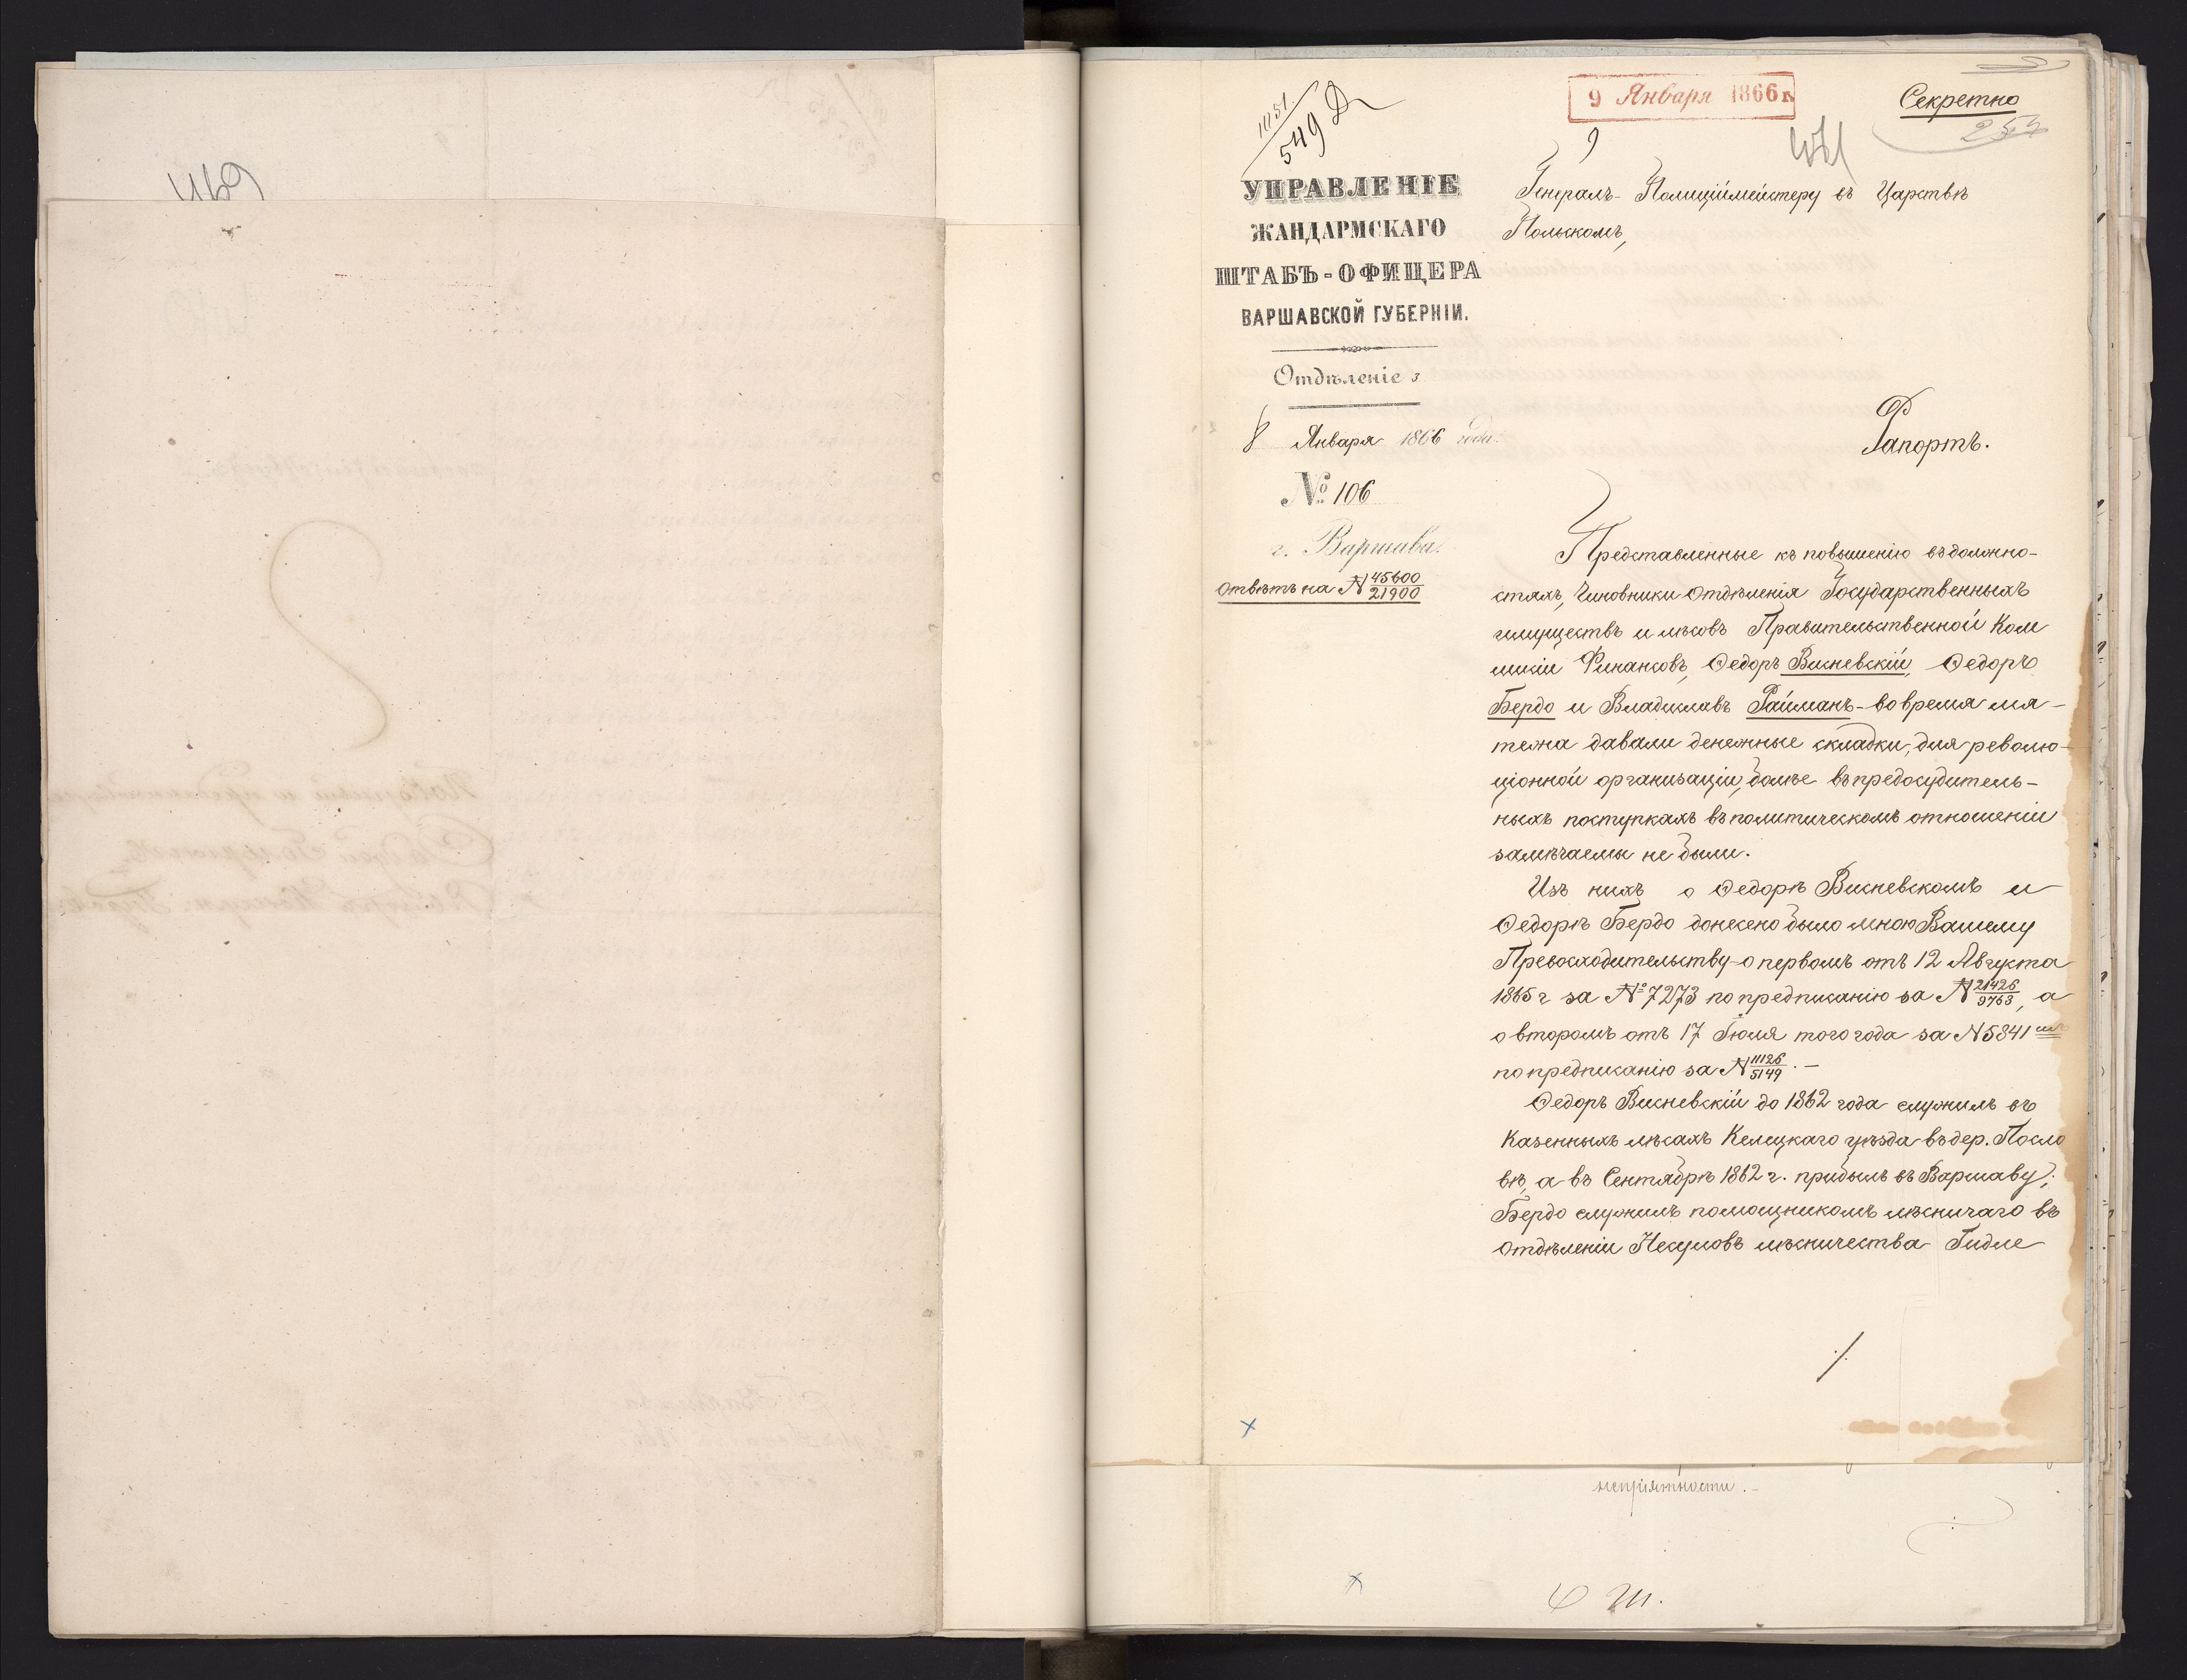 469
1151
549 Д
9 Января 1866 г.
Секретно
253
471
УПРАВЛЕНІЕ
ЖАНДАРМСКАГО
ШТАБЪ-ОФИЦЕРА
ВАРШАВСКОЙ ГУБЕРНІИ.
Отдѣленіе 3
8 Января 1866 года.
№ 106
г. Варшава.
Отвѣтъ на N 45600/21900
Генералъ-Полиціймейстеру въ Царствѣ
Польскомъ,
Рапортъ.
Представленные къ повышенію въ должно-
стяхъ, Чиновники Отдѣленія Государственныхъ
имуществъ и лѣсовъ Правительственной Ком
мисіи Финансовъ, Ѳедоръ Висневскій, Ѳедоръ
Бердо и Владиславъ Райманъ - во время мя-
тежа давали денежные складки, для револю-
ціонной организаціи, болѣе въ предосудитель-
ныхъ поступкахъ въ политическомъ отношеніи
замѣчаемы не были.
Изъ нихъ о Ѳедорѣ Висневскомъ и
Ѳедорѣ Бердо донесено было мною Вашему
Превосходительству - о первомъ отъ 12 Августа
1865 г за № 7273 по предписанію за N 21426/9763, а
о второмъ отъ 17 Іюля того года за N 5841
по предписанію за N 11126/5149. —
Ѳедоръ Висневскій до 1862 года служилъ въ
Казенныхъ лѣсахъ Келецкаго уѣзда въ дер. Посло
вѣ, а въ Сентябрѣ 1862 г. прибылъ въ Варшаву;
Бердо служилъ помощникомъ лѣсничаго въ
Отдѣленіи Несуловъ лѣсничества Гидле
./.
непріятности. -